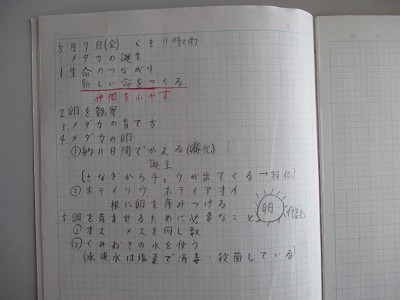 5月7日(金) くもり時々雨
メダカの誕生
1.生命のつながり
新しい命をつくる
仲間をふやす
2.卵を観察
3.メダカの育て方
4.メダカの卵
①約11日間でかえる(孵化)
誕生
(さなぎからチョウが出てくる→羽化)
②ホテイソウ ホテイアオイ
根に卵を産みつける
卵
付着毛
5.卵を産ませるために必要なこと
①オス メスを同じ数
②くみおきの水を使う
(水道水は塩素で消毒・殺菌している)